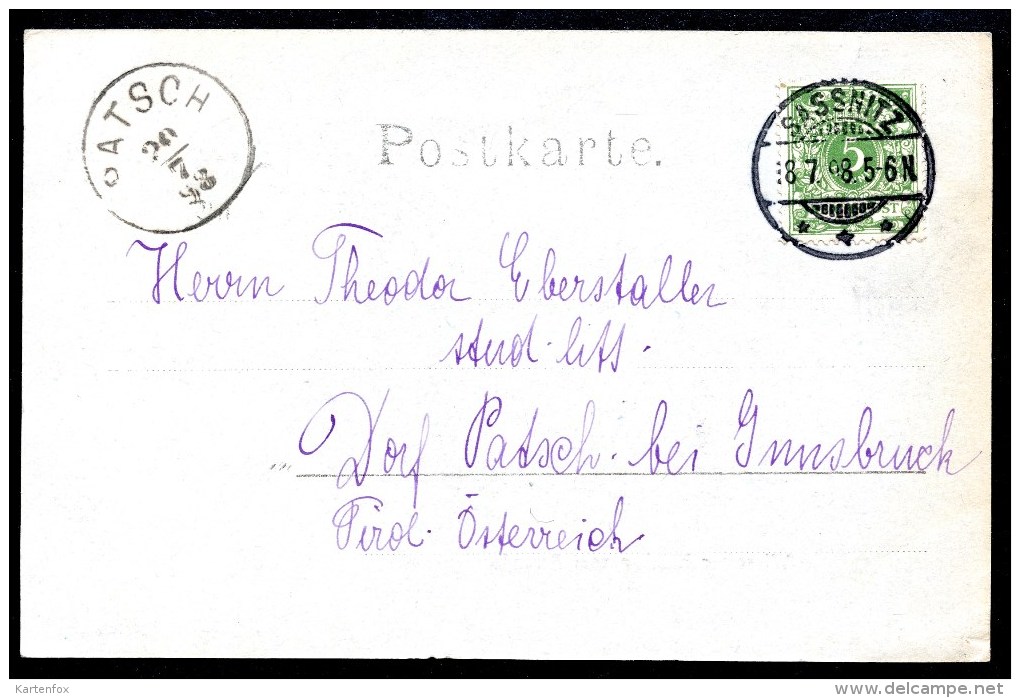 PATSCH
20/7
98
Postkarte.
SASSNITZ
18.7.98.5-6N.
5
Herrn Theodor Eberstaller
stud. litt.
Dorf Patsch. bei Innsbruck
Tirol. Österreich.
Kartenfox
www.delcampe.net